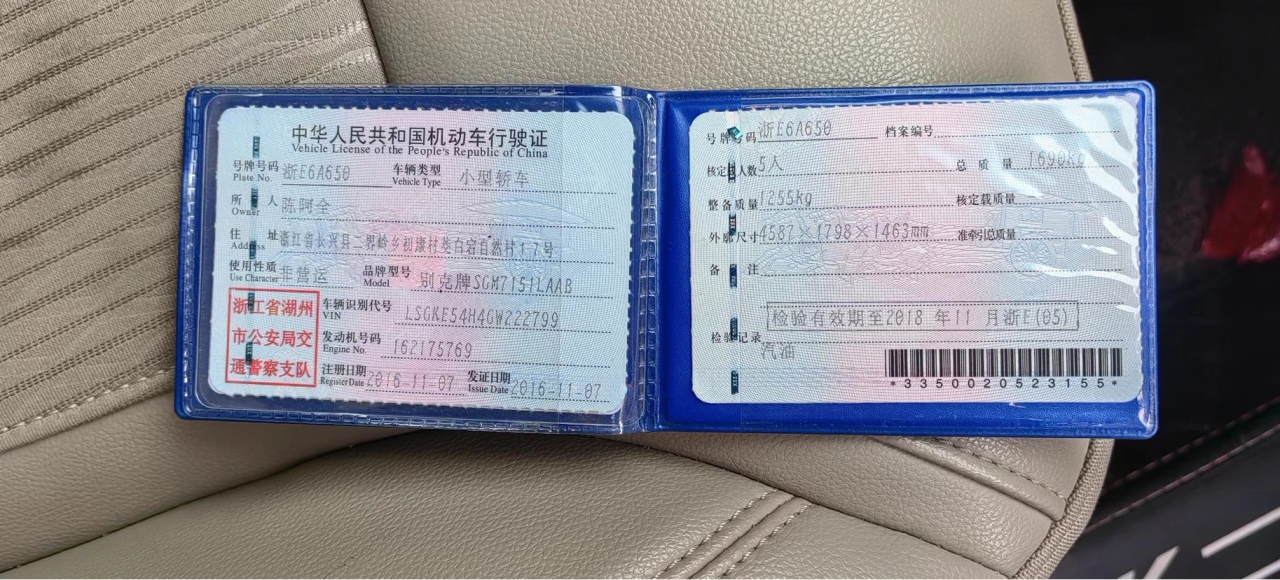 中华人民共和国机动车行驶证
Vehicle License of the People's Republic of China
号牌号码 浙E6A650 车辆类型 小型轿车
Plate No. Vehicle Type
所有人 陈阿全
Owner
住址 浙江省长兴县二界岭乡初康村 自然村17号
Address
使用性质 非营运 品牌型号 别克牌SGM7151LAAB
Use Character Model
浙江省湖州
市公安局交
通警察支队
车辆识别代号 LSGKE54H4GW222799
VIN
发动机号码 162175769
Engine No.
注册日期 2016-11-07 发证日期 2016-11-07
Register Date Issue Date
号牌号码 浙E6A650 档案编号
核定载人数 5人 总质量 1690KG
整备质量 1255kg 核定载质量
外廓尺寸 4587×1798×1463mm 准牵引总质量
备注
检验有效期至2018 年11 月浙E(05)
检验记录
汽油
*3350020523155*